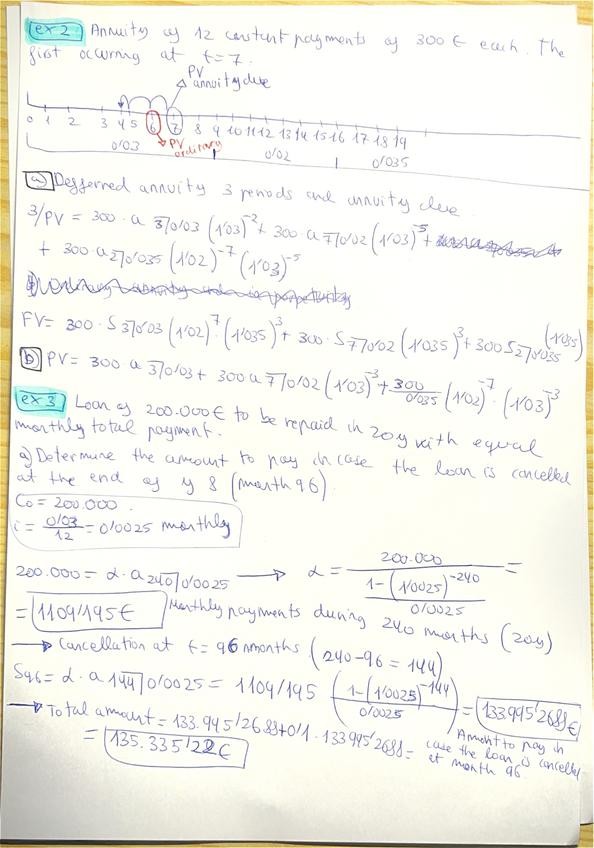 ex 2 Annuity of 12 constant payments of 300 € each. The
first occurring at t=7.
PV
annuity due
0 1 2 3 4 5 6 7 8 9 10 11 12 13 14 15 16 17 18 19
PV
ordinary
0'03 0'02 0'035
a) Defferred annuity 3 periods and annuity due
3/PV = 300 · a 3⌉0'03 (1'03)^-2 + 300 · a 7⌉0'02 (1'03)^-5 +
+ 300 · a 2⌉0'035 (1'02)^-7 (1'03)^-5
FV = 300 · S 3⌉0'03 (1'02)^7 · (1'035)^3 + 300 · S 7⌉0'02 (1'035)^3 + 300 S 2⌉0'035 (1'035)
b) PV = 300 a 3⌉0'03 + 300 a 7⌉0'02 (1'03)^-3 + 300/0'035 (1'02)^-7 · (1'03)^-3
ex 3 Loan of 200.000 € to be repaid in 20y with equal
monthly total payment.
a) Determine the amount to pay in case the loan is cancelled
at the end of y 8 (month 96)
C0 = 200.000.
i = 0'03/12 = 0'0025 monthly
200.000 = α · a 240⌉0'0025 → α = 200.000 / ((1-(1'0025)^-240) / 0'0025) =
= 1109'195 € Monthly payments during 240 months (20y)
→ Cancellation at t = 96 months (240-96 = 144)
S96 = α · a 144⌉0'0025 = 1109'195 ((1-(1'0025)^-144) / 0'0025) = 133.995'2688 €
→ Total amount = 133.995'2688 + 0'1 · 133.995'2688 =
= 135.335'22 €
Amount to pay in
case the loan is cancelled
at month 96